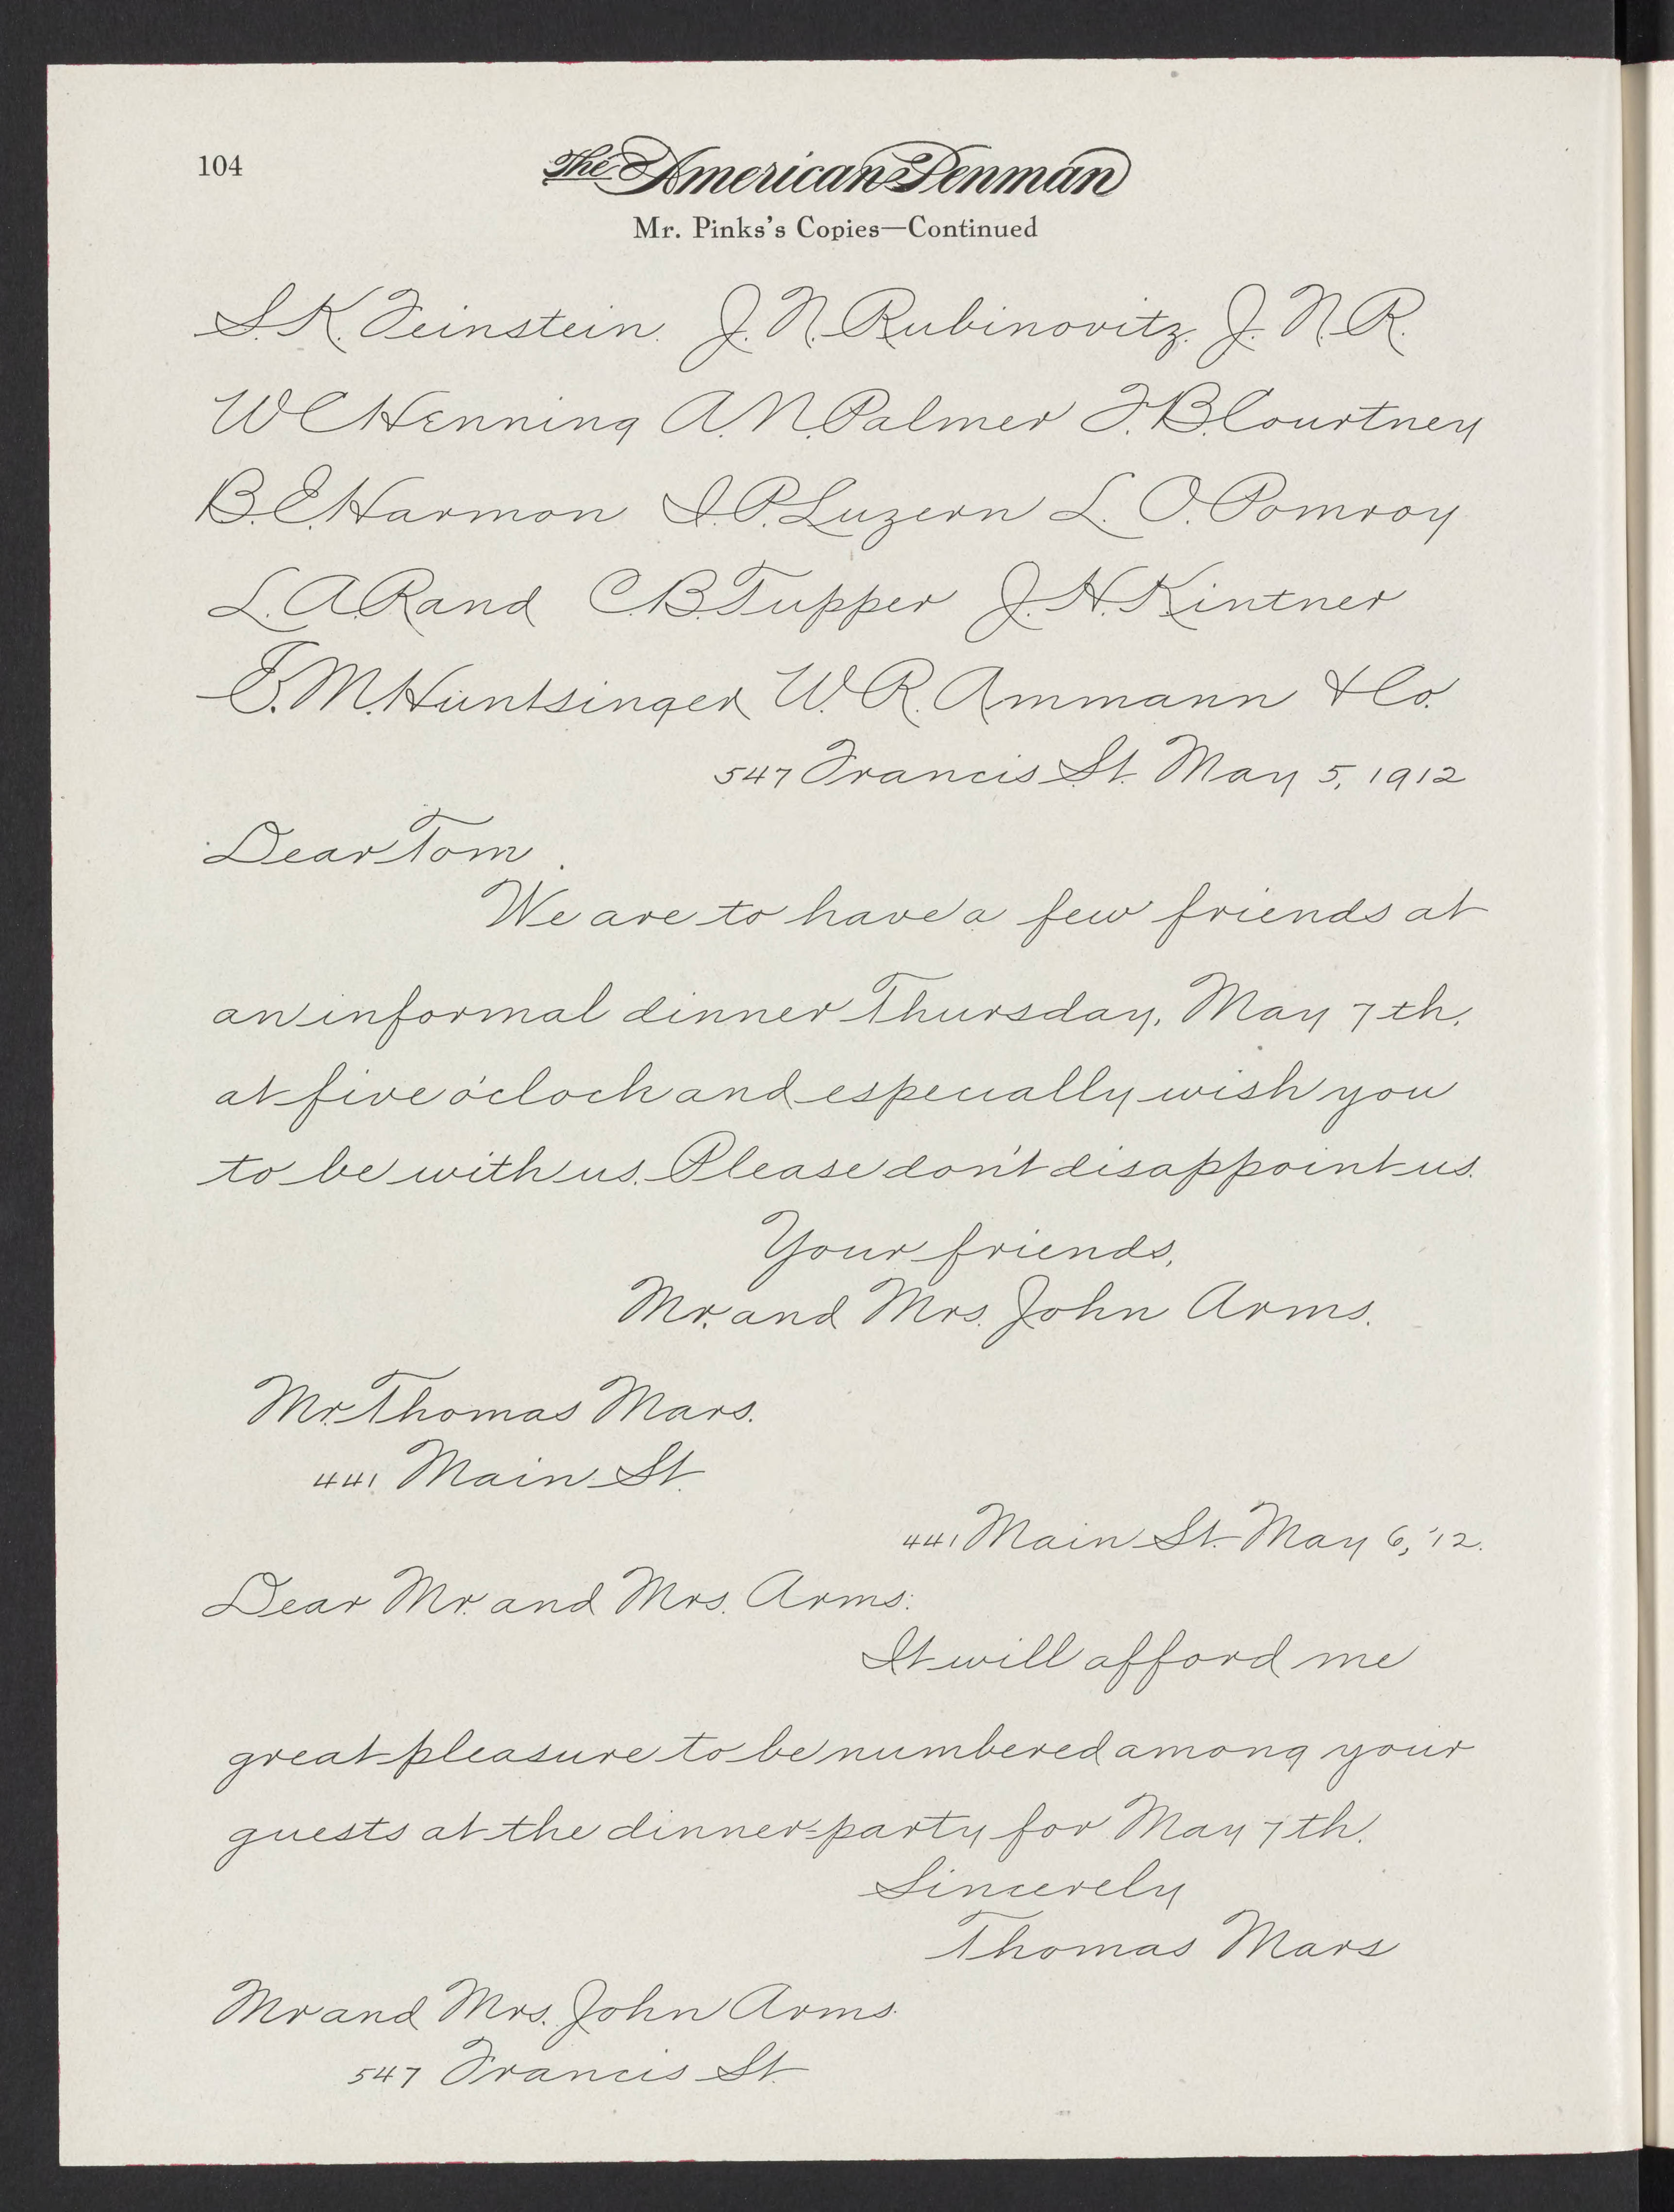 104
The American Penman
Mr. Pinks's Copies—Continued
S. K. Feinstein. J. N. Rubinovitz. J. N. R.
W C Henning A. N. Palmer F. B. Courtney
B. E. Harmon I. P. Luzern L. O. Pomroy
L. A. Rand C. B. Tupper J. H. Kintner
E. M. Huntsinger W. R. Ammann & Co.
547 Francis St. May 5, 1912
Dear Tom
We are to have a few friends at
an informal dinner Thursday, May 7th,
at five o'clock and especially wish you
to be with us. Please don't disappoint us.
Your friends,
Mr. and Mrs. John Arms.
Mr. Thomas Mars.
441 Main St.
441 Main St. May 6, '12.
Dear Mr. and Mrs. Arms:
It will afford me
great pleasure to be numbered among your
guests at the dinner-party for May 7th.
Sincerely
Thomas Mars
Mr and Mrs. John Arms.
547 Francis St.